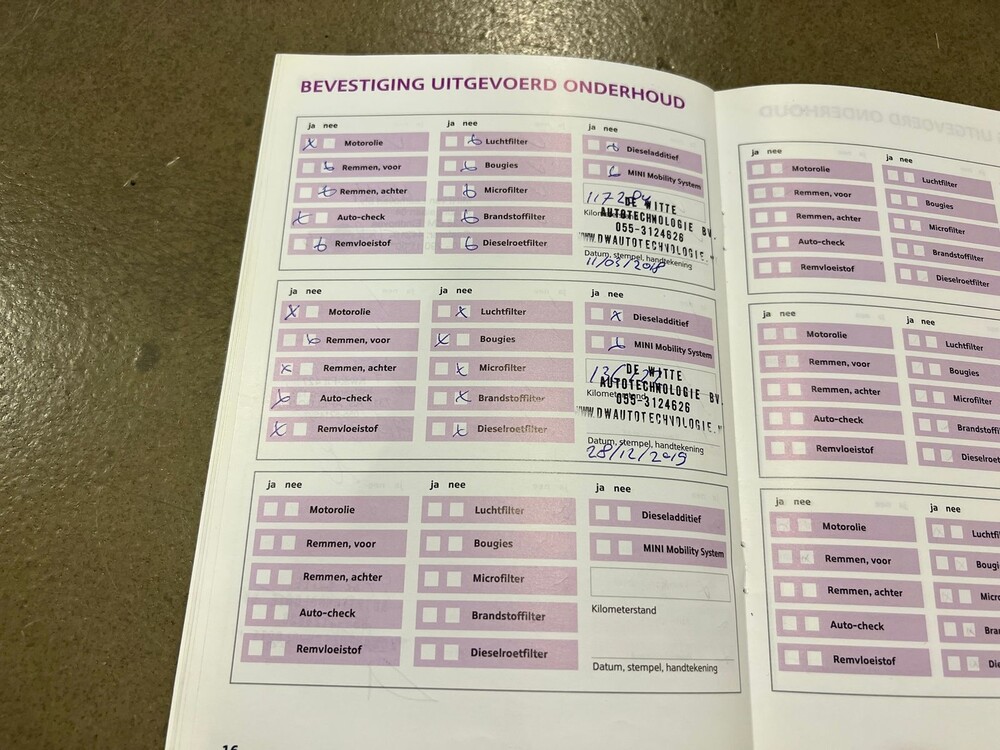 BEVESTIGING UITGEVOERD ONDERHOUD
ja nee
Motorolie
Remmen, voor
Remmen, achter
Auto-check
Remvloeistof
ja nee
Luchtfilter
Bougies
Microfilter
Brandstoffilter
Dieselroetfilter
ja nee
Dieseladditief
MINI Mobility System
DE WITTE
AUTOTECHNOLOGIE BV.
055-3124626
WWW.DWAUTOTECHNOLOGIE.
Datum, stempel, handtekening
11/03/2018
ja nee
Motorolie
Remmen, voor
Remmen, achter
Auto-check
Remvloeistof
ja nee
Luchtfilter
Bougies
Microfilter
Brandstoffilter
Dieselroetfilter
ja nee
Dieseladditief
MINI Mobility System
DE WITTE
AUTOTECHNOLOGIE BV.
Kilometerstand
055-3124626
WWW.DWAUTOTECHNOLOGIE.
Datum, stempel, handtekening
28/12/2019
ja nee
Motorolie
Remmen, voor
Remmen, achter
Auto-check
Remvloeistof
ja nee
Luchtfilter
Bougies
Microfilter
Brandstoffilter
Dieselroetfilter
ja nee
Dieseladditief
MINI Mobility System
Kilometerstand
Datum, stempel, handtekening
16
ja nee
Motorolie
Remmen, voor
Remmen, achter
Auto-check
Remvloeistof
ja nee
Luchtfilter
Bougies
Microfilter
Brandstoffilter
Dieselroetfilter
ja nee
Motorolie
Remmen, voor
Remmen, achter
Auto-check
Remvloeistof
ja nee
Luchtfilter
Bougies
Microfilter
Brandstoffi
Dieselroet
ja nee
Motorolie
Remmen, voor
Remmen, achter
Auto-check
Remvloeistof
ja nee
Luchtf
Bougi
Micro
Bra
Die